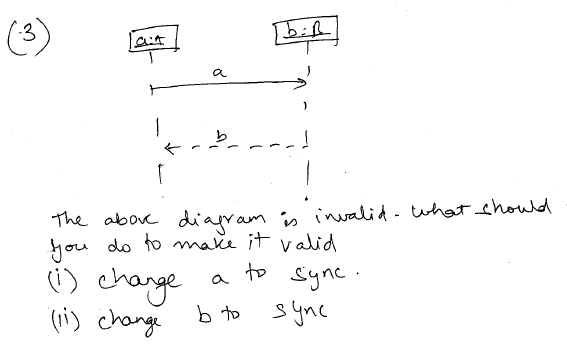 (3)
a:A
b:B
a
b
The above diagram is invalid - what should
you do to make it valid
(i) change a to sync.
(ii) change b to sync